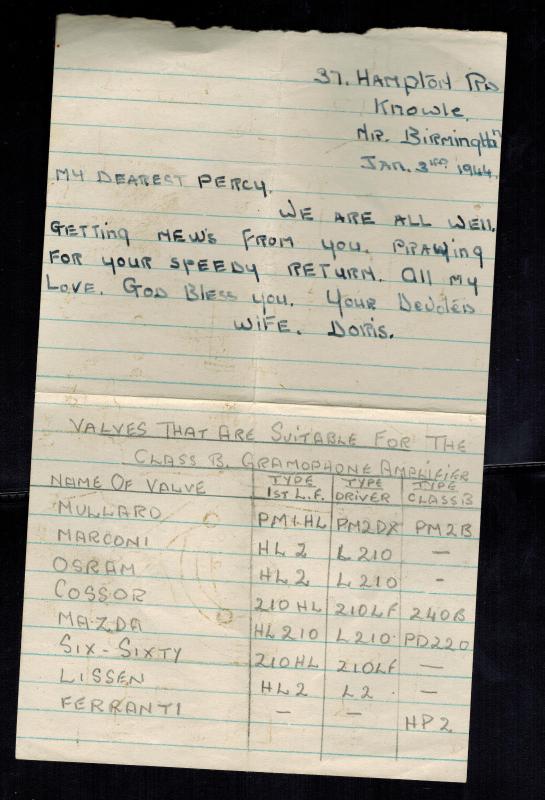 37. Hampton Rd
Knowle.
Nr. Birmingham
Jan. 3rd 1944.
My Dearest Percy.
We are all well.
Getting news from you. Prawing
for your speedy return. All my
Love. God Bless you. Your Devoded
Wife. Doris.
VALVES THAT ARE SUITABLE FOR THE
CLASS B. GRAMOPHONE AMPLIFIER
NAME OF VALVE TYPE 1ST L.F. TYPE DRIVER TYPE CLASS B
MULLARD PM1HL PM2DX PM2B
MARCONI HL2 L210 —
OSRAM HL2 L210 -
COSSOR 210HL 210LF 240B
MAZDA HL210 L210 PD220
SIX-SIXTY 210HL 210LF —
LISSEN HL2 L2 —
FERRANTI — — HP2